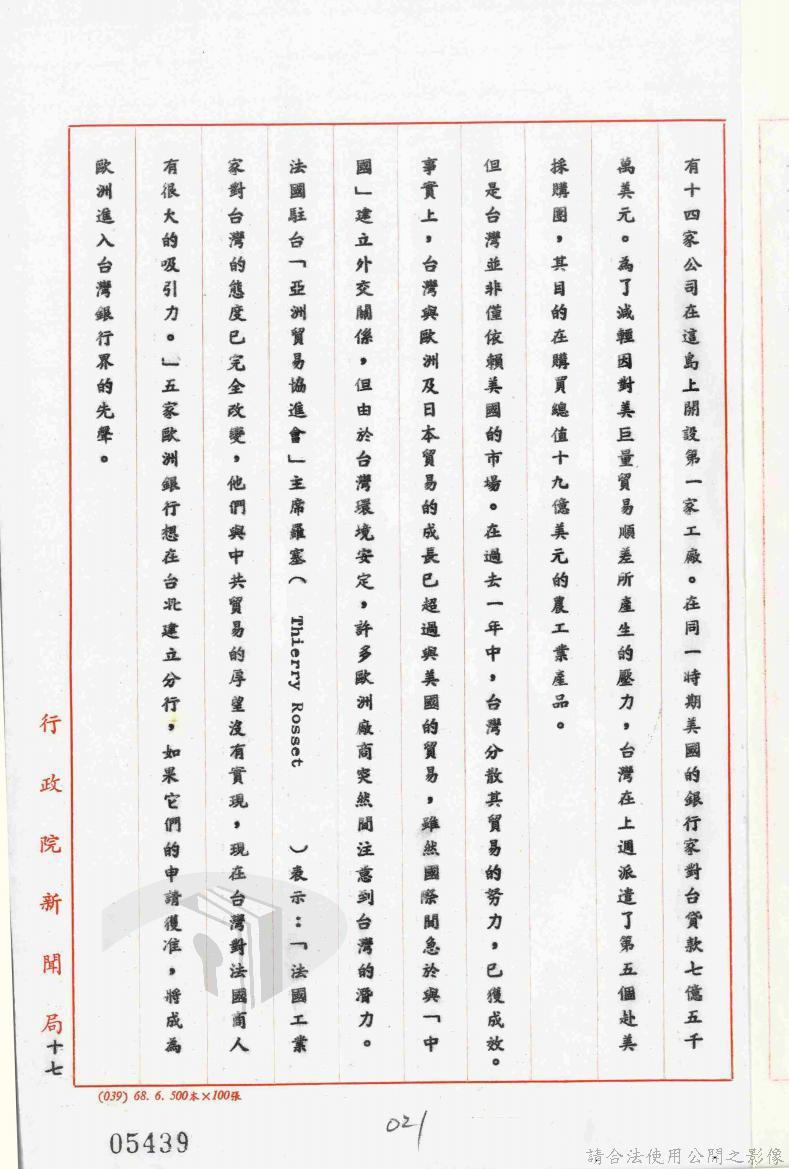 有十四家公司在這島上開設第一家工廠。在同一時期美國的銀行家對台貸款七億五千
萬美元。為了減輕因對美巨量貿易順差所產生的壓力，台灣在上週派遣了第五個赴美
採購團，其目的在購買總值十九億美元的農工業產品。
但是台灣並非僅依賴美國的市場。在過去一年中，台灣分散其貿易的努力，已獲成效。
事實上，台灣與歐洲及日本貿易的成長已超過與美國的貿易，雖然國際間急於與「中
國」建立外交關係，但由於台灣環境安定，許多歐洲廠商突然間注意到台灣的潛力。
法國駐台「亞洲貿易協進會」主席羅塞（Thierry Rosset）表示：「法國工業
家對台灣的態度已完全改變，他們與中共貿易的厚望沒有實現，現在台灣對法國商人
有很大的吸引力。」五家歐洲銀行想在台北建立分行，如果它們的申請獲准，將成為
歐洲進入台灣銀行界的先聲。
行政院新聞局
十七
(039) 68. 6. 500本×100張
021
05439
請合法使用公開之影像